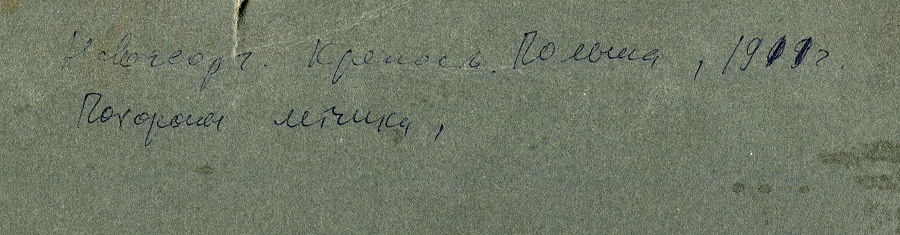 Новогеорг. Крепость. Польша, 1911г.
Похороны летчика,